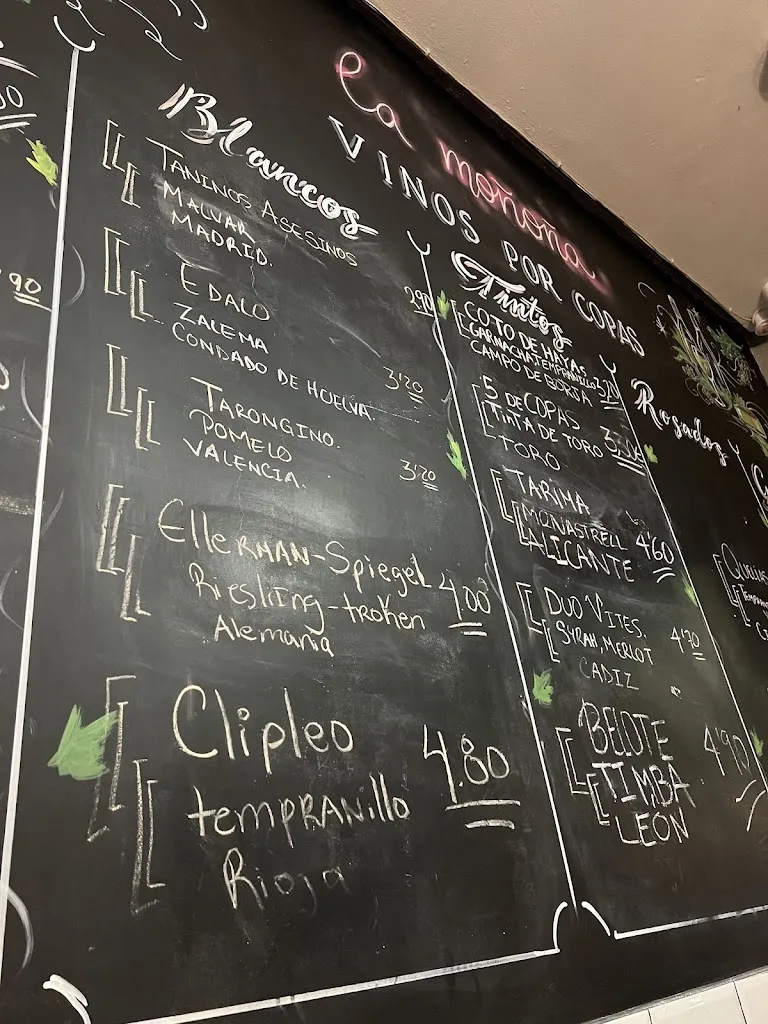 la moñoña
VINOS POR COPAS
Blancos
TANINOS ASESINOS
MALVAR
MADRID.
2'90
EDALO
ZALEMA
CONDADO DE HUELVA.
3'20
TARONGINO.
POMELO
VALENCIA.
3'20
EllerMAN-Spiegel
Riesling-trohen
Alemania
4'00
Clipleo
tempRANillo
Rioja
4.80
Tintos
COTO DE HAYAS
GARNACHA, TEMPRANILLO
CAMPO DE BORJA
5 DE COPAS
TINTA DE TORO
TORO
TARIMA
MONASTRELL
ALICANTE
4'60
DUO VITES.
SYRAH, MERLOT
CADIZ
4'70
BELOTE
TIMBA
LEÓN
4'90
Rosados
90